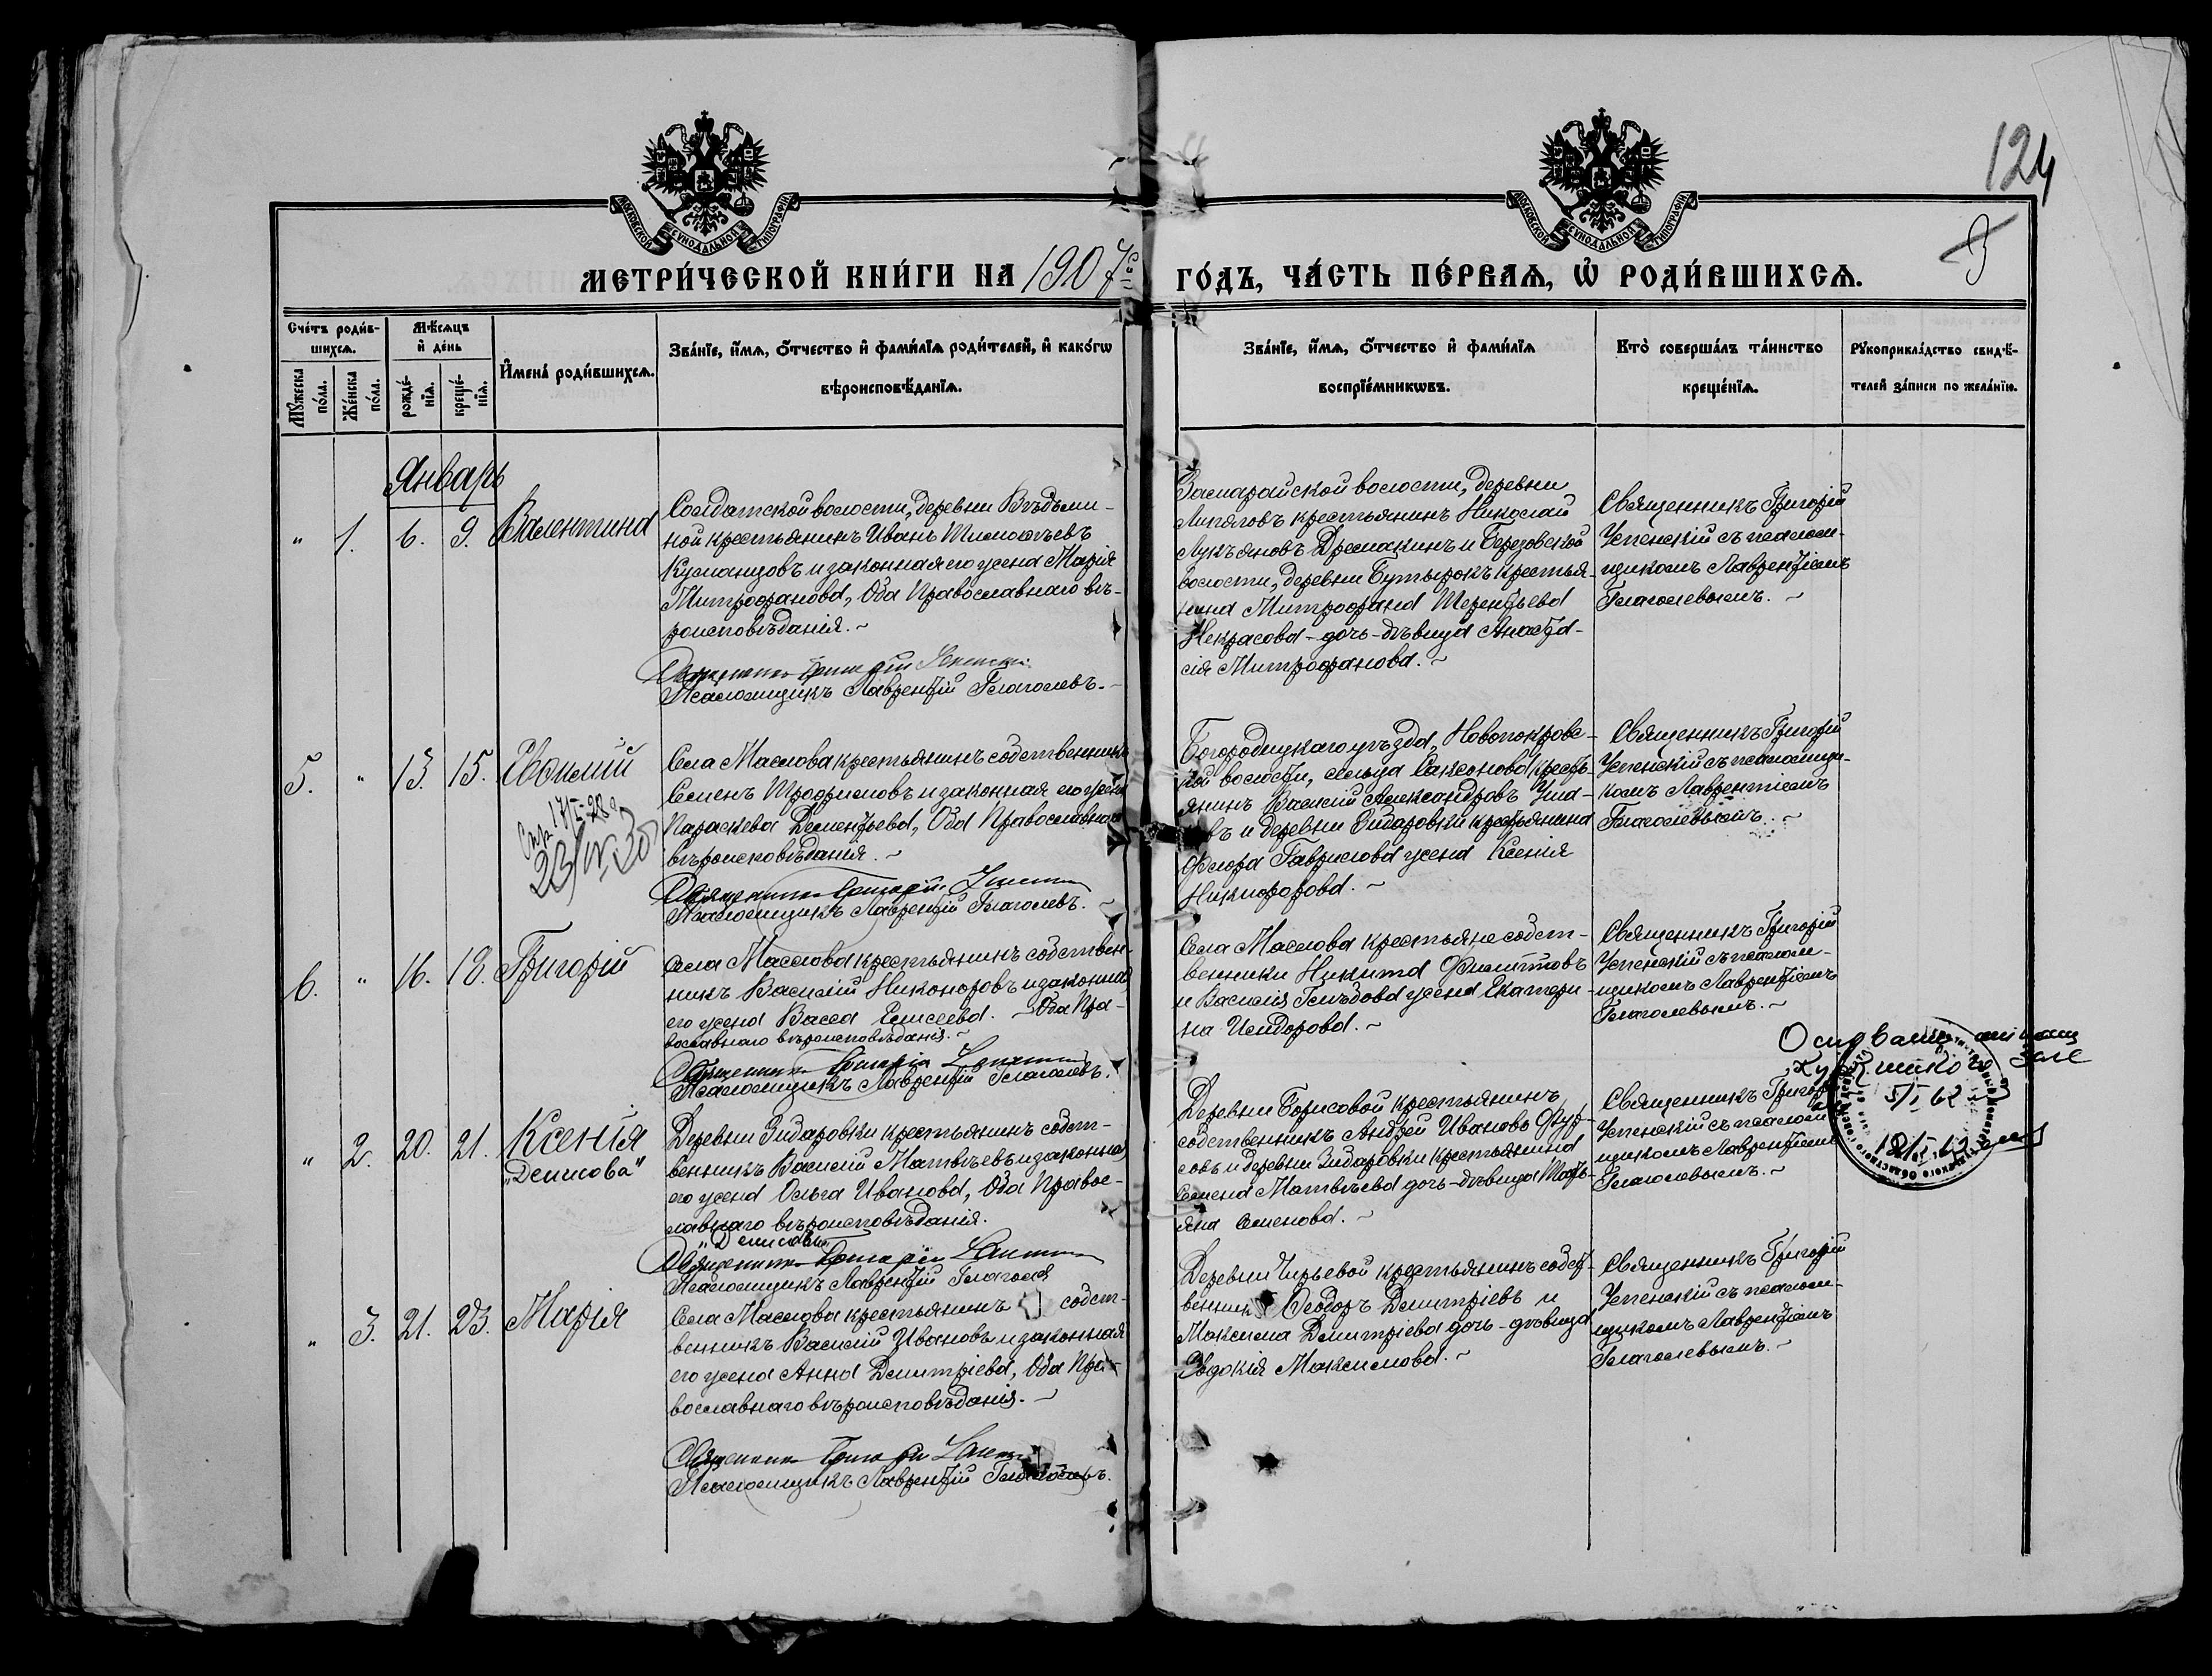 124
3
МОСКОВСКОЙ СѴНОДАЛЬНОЙ ТИПОГРАФІИ
МОСКОВСКОЙ СѴНОДАЛЬНОЙ ТИПОГРАФІИ
МЕТРИ́ЧЕСКОЙ КНИ́ГИ НА 1907й
ГО́ДЪ, ЧА́СТЬ ПЕ́РВАѦ, Ѡ҆ РОДИ́ВШИХСѦ.
Сче́тъ роди́в-
шихсѧ.
Мꙋ́жеска по́ла.
Же́нска по́ла.
Мѣ́сѧцъ
и҆ де́нь
рожде́-нїѧ.
креще́-нїѧ.
И҆мена̀ роди́вшихсѧ.
Зва́нїе, и҆́мѧ, ѻ҆́тчество и҆ фами́лїѧ роди́телей, и҆ како́гѡ
вѣроисповѣ́данїѧ.
Зва́нїе, и҆́мѧ, ѻ҆́тчество и҆ фами́лїѧ
воспрїе́мникѡвъ.
Кто̀ соверша́лъ та́инство
креще́нїѧ.
Рꙋкоприкла́дство свидѣ́-
телей за́писи по жела́нїю.
Январь
" 1. 6. 9. Валентина
Солдатской волости, деревни Вѣдьми-
ной крестьянинъ Иванъ Тимоѳеевъ
Кузнецовъ и законная его жена Марія
Митрофанова, Оба Православнаго вѣ-
роисповѣданія. ~
Священникъ Григорій Успенскій
Псаломщикъ Лаврентій Глаголевъ. -
волости, деревни
Липяговъ крестьянинъ Николай
Лукьяновъ Дремакинъ и Березовской
волости, деревни Бутырокъ крестья-
нина Митрофана Терентьева
Некрасова - дочь - дѣвица Анаста-
сія Митрофанова. ~
Священникъ Григорій
Успенскій съ псалом-
щикомъ Лаврентіемъ
Глаголевымъ. ~
5. " 13. 15. Евѳимій
17/I-28 г
23/IV 30
Села Маслова крестьянинъ собственникъ
Семенъ Трофимовъ и законная его жена
Параскева Дементьева, Оба Православнаго
вѣроисповѣданія. ~
Священникъ Григорій Успенскій
Псаломщикъ Лаврентій Глаголевъ. ~
Богородицкаго уѣзда, Новопокров-
ской волости, сельца Саксонова кресть-
янинъ Василій Александровъ
и деревни Зибаровки крестьянина
Флора Гаврилова жена Ксенія
Никифорова. ~
Священникъ Григорій
Успенскій съ псаломщи-
комъ Лаврентіемъ
Глаголевымъ. ~
6. " 16. 18. Григорій
Села Маслова крестьянинъ собствен-
никъ Василій Никоноровъ и законная
его жена Васса Елисеева. - Оба Пра-
вославнаго вѣроисповѣданія. ~
Священникъ Григорій Успенскій
Псаломщикъ Лаврентій Глаголевъ.
Села Маслова крестьяне собст-
венники Никита Филипповъ
и Василія Глѣбова жена Екатери-
на Исидорова. ~
Священникъ Григорій
Успенскій съ псалом-
щикомъ Лаврентіемъ
Глаголевымъ. ~
" 2. 20. 21. Ксенія
"Денисова"
Деревни Зибаровки крестьянинъ собст-
венникъ Василій Матвѣевъ и законная
его жена Ольга Иванова, Оба Правос-
лавнаго вѣроисповѣданія.
"Денисовы"
Священникъ Григорій Успенскій
Псаломщикъ Лаврентій Глаголев
Деревни Борисовой крестьянинъ
собственникъ Андрей Ивановъ Фур-
совъ и деревни Зибаровки крестьянина
Семена Матвѣева дочь - дѣвица Тать-
яна Семенова. ~
Священникъ Григорій
Успенскій съ псалом-
щикомъ Лаврентіемъ
Глаголевымъ. ~
" 3. 21. 23. Марія
Села Маслова крестьянинъ собст-
венникъ Василій Ивановъ и законная
его жена Анна Димитріева, Оба Пра-
вославнаго вѣроисповѣданія. ~
Священникъ Григорій Успенскій
Псаломщикъ Лаврентій Глаголевъ.
Деревни Чирьевой крестьянинъ собст-
венникъ Ѳеодоръ Димитріевъ и
Максима Димитріева дочь - дѣвица
Евдокія Максимова. ~
Священникъ Григорій
Успенскій съ псалом-
щикомъ Лаврентіемъ
Глаголевымъ. ~